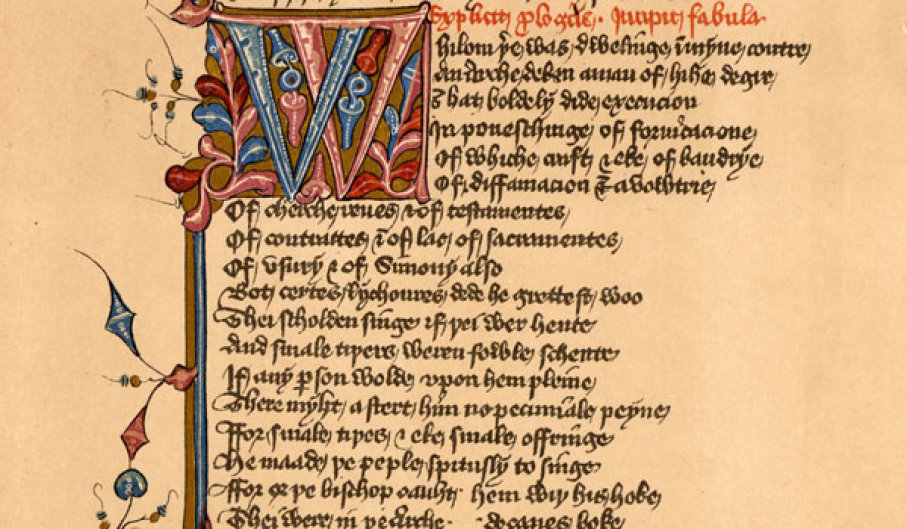 Explicit prologus. Incipit fabula.
Whilom þer was dwellinge in myne contre
An erchedeken a man of hihe degre
That boldely dide execucion
In poneschinge of fornicacione
Of whiche craft & eke of baudrye
Of diffamacion & avowtrie
Of chirche reues & of testamentes
Of contractes & of lac of sacramentes
Of vsury & of Simony also
Bot certes lychoures dede he grettest woo
Thei scholden singe if þei wer hente
And smale tiþers weren fowle schente
If any person wolde vpon hem pleine
There myht a stert him no pecuniale peyne
Ffor smale tiþes & eke smale offringe
He maade þe peple spitusly to singe
Ffor er þe bischop cauht hem wiþ his hoke
Thei were in þe boke